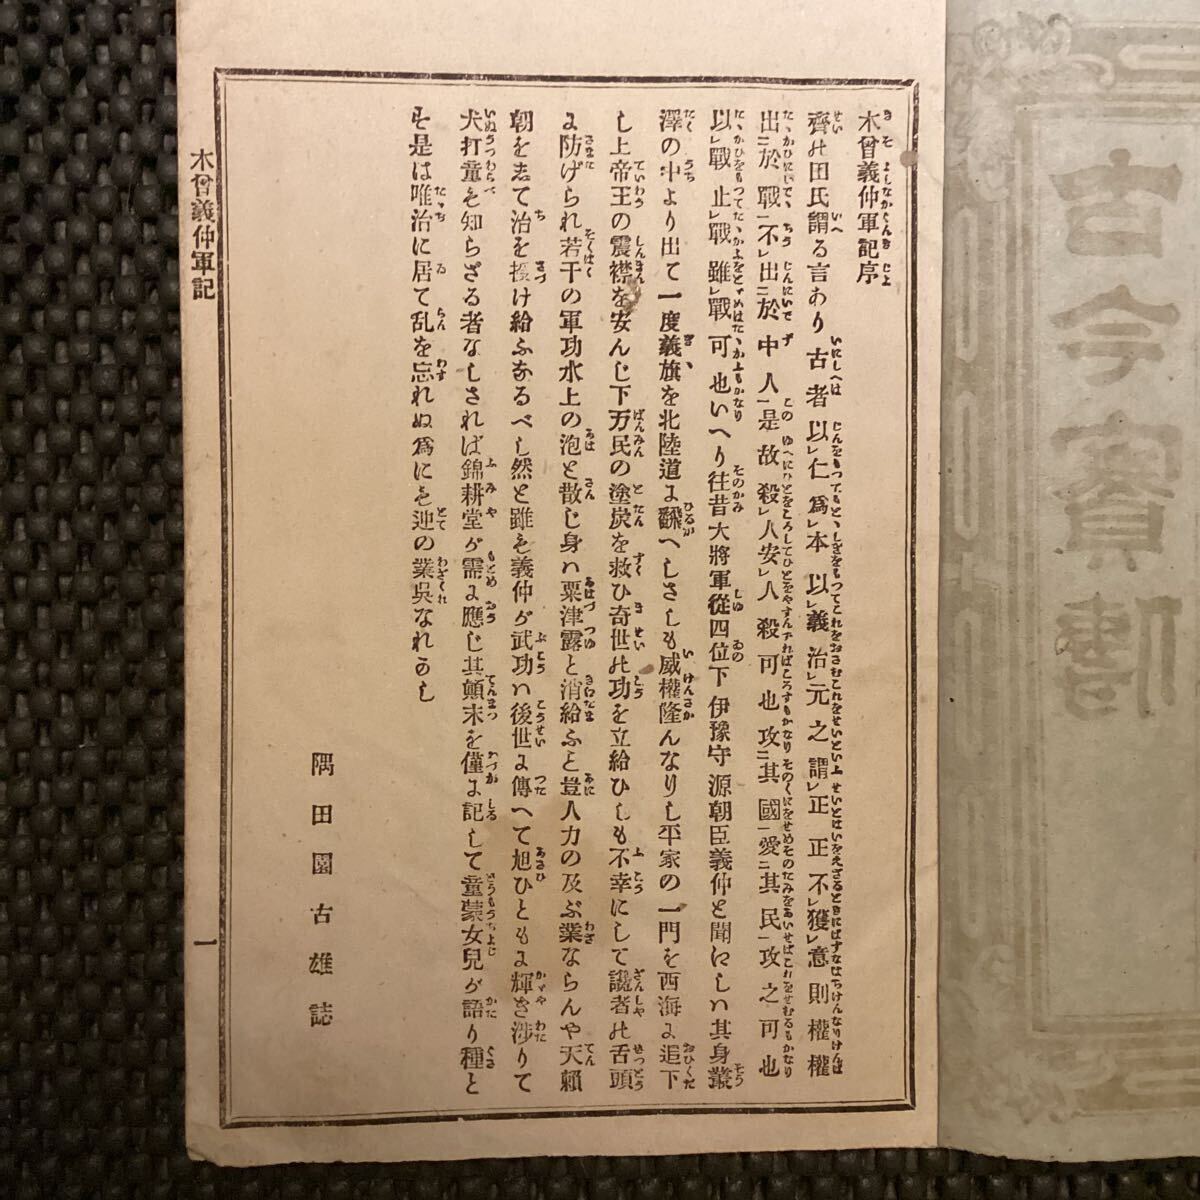 古今實録
木曾義仲軍記序
齊の田氏謂る言あり古者以レ仁爲レ本以レ義治レ元之謂レ正正不レ獲レ意則權權
出二於戰一不レ出二於中人一是故殺レ人安レ人殺可也攻二其國一愛二其民一攻之可也
以レ戰止レ戰雖レ戰可也いへり往昔大將軍從四位下伊豫守源朝臣義仲と聞にしハ其身叢
澤の中より出て一度義旗を北陸道に飜へしさしも威權隆んなりし平家の一門を西海に追下
し上帝王の震襟を安んじ下万民の塗炭を救ひ奇世の功を立給ひしも不幸にして讒者の舌頭
に防げられ若干の軍功水上の泡と散じ身ハ粟津露と消給ふと豈人力の及ぶ業ならんや天賴
朝をして治を援け給ふなるべし然と雖も義仲が武功ハ後世に傳へて旭ひとも に輝き渉りて
犬打童も知らざる者なしされば錦耕堂が需に應じ其顛末を僅に記して童蒙女兒が語り種と
も是は唯治に居て乱を忘れぬ爲にも迎の業呉なれかし
隅田園古雄誌
木曾義仲軍記
一